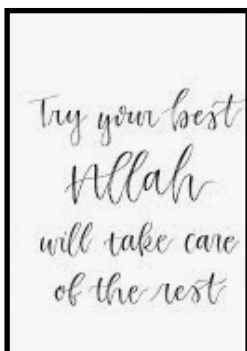 Try your best
Allah
will take care
of the rest